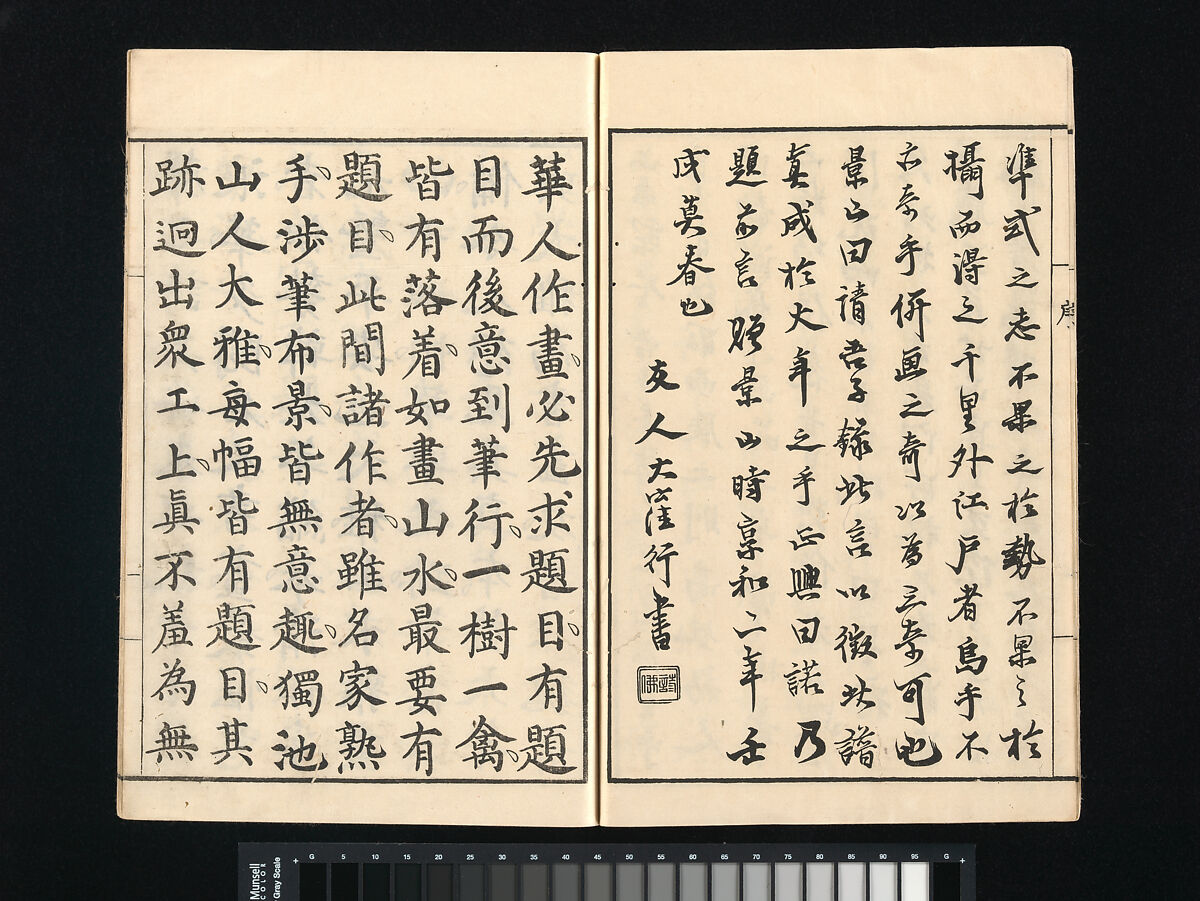 準式之志不果之於勢不果之於
攝而得之千里外江戸者烏乎不
亦奇乎併畫之奇以為三奇可也
景山曰請吾子録此言以徵此譜
真成於大年之手正興曰諾乃
題前言贈景山時享和二年壬
戌莫春也
友人大窪行書
詩佛
序
華人作畫必先求題目有題
目而後意到筆行一樹一禽
皆有落着如畫山水最要有
題目此間諸作者雖名家熟
手涉筆布景皆無意趣獨池
山人大雅每幅皆有題目其
跡迥出衆工上眞不羞為無
Munsell
COLOR
Gray Scale
G 5 10 15 20 25 30 35 40 45 50 55 60 65 70 75 80 85 90 95 G